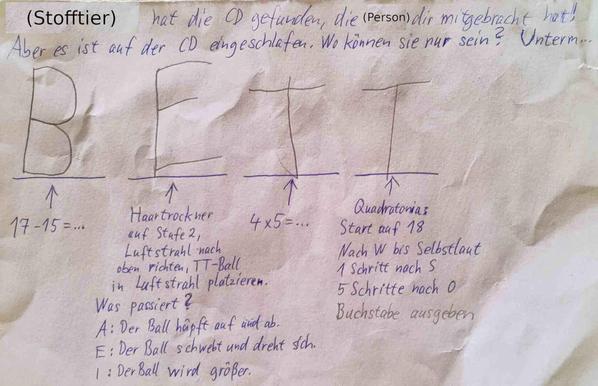 (Stofftier) hat die CD gefunden, die (Person) dir mitgebracht hat!
Aber es ist auf der CD eingeschlafen. Wo können sie nur sein? Unterm...
B E T T
17-15=...
Haartrockner
auf Stufe 2,
Luftstrahl nach
oben richten, TT-Ball
in Luftstrahl platzieren.
Was passiert?
A: Der Ball hüpft auf und ab.
E: Der Ball schwebt und dreht sich.
I: Der Ball wird größer.
4x5=...
Quadratonias
Start auf 18
Nach W bis Selbstlaut
1 Schritt nach S
5 Schritte nach O
Buchstabe ausgeben